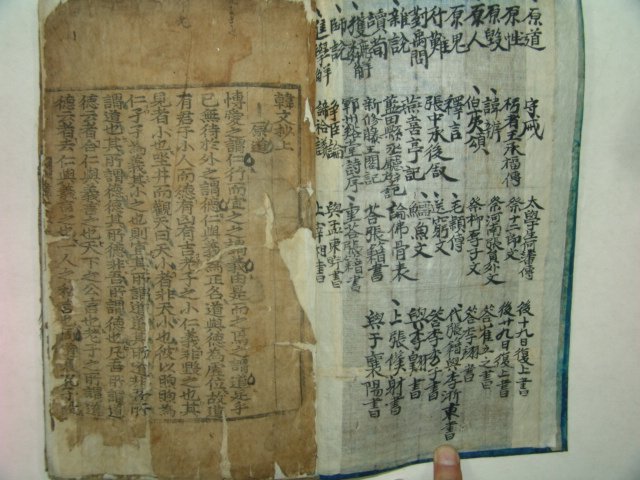 原道
原性
原毀
原人
原鬼
行難
對禹問
雜說
讀荀
獲麟解
師說
進學解
守戒
圬者王承福傳
諱辨
伯夷頌
釋言
張中丞後敘
燕喜亭記
藍田縣丞廳壁記
新修滕王閣記
鄆州谿堂詩序
爭臣論
太學生何蕃傳
祭十二郎文
祭河南張員外文
祭柳子厚文
毛穎傳
送窮文
鱷魚文
論佛骨表
答張籍書
重答張籍書
與孟東野書
上宰相書
後十九日復上書
後廿九日復上書
答崔立之書
答李翊書
代張籍與李浙東書
答李秀才書
與李翺書
上張僕射書
與于襄陽書
韓文抄上
原道
博愛之謂仁行而宜之之謂義由是而之焉之謂道足乎
已無待於外之謂德仁與義爲定名道與德爲虛位故道
有君子小人而德有凶有吉老子之小仁義非毀之也其
見者小也坐井而觀天曰天小者非天小也彼以煦煦爲
仁孑孑爲義其小之也則宜其所謂道道其所道非吾所
謂道也其所謂德德其所德非吾所謂德也凡吾所謂道
德云者合仁與義言之也天下之公言也老子之所謂道
德云者去仁與義言之也